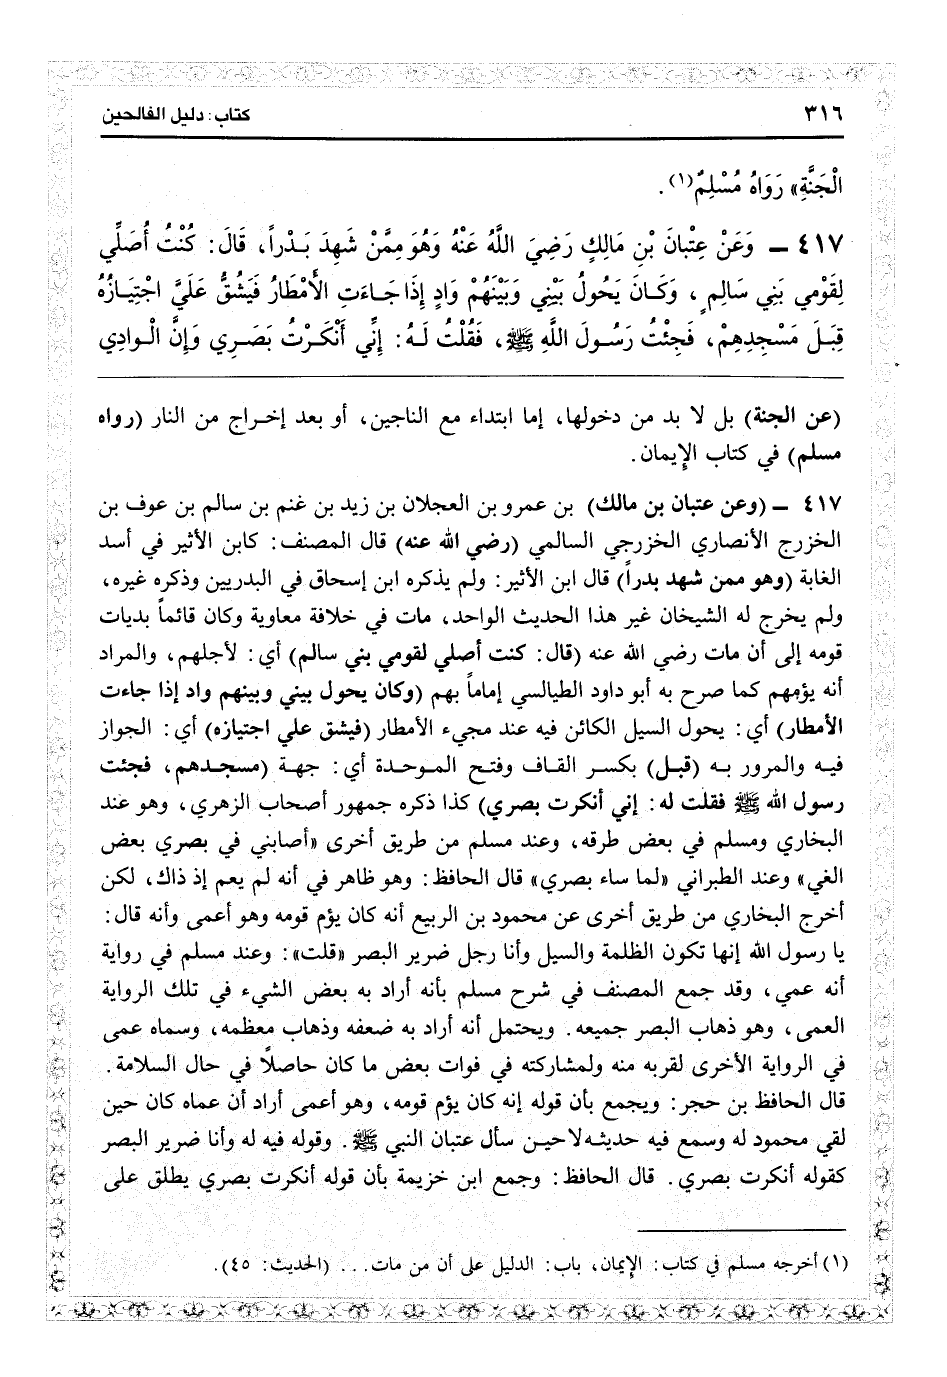 ٣١٦
كتاب: دليل الفالحين
الْجَنَّةِ» رَوَاهُ مُسْلِمٌ(١).
٤١٧ - وَعَنْ عِتْبانَ بْنِ مَالِكٍ رَضِيَ اللَّهُ عَنْهُ وَهُوَ مِمَّنْ شَهِدَ بَدْراً، قَالَ: كُنْتُ أُصَلِّي
لِقَوْمي بَنِي سَالِمٍ، وَكَانَ يَحُولُ بَيْنِي وَبَيْنَهُمْ وَادٍ إِذَا جَاءَتِ الأَمْطَارُ فَيَشُقُّ عَلَيَّ اجْتِيَازُهُ
قِبَلَ مَسْجِدِهِمْ، فَجِئْتُ رَسُولَ اللَّهِ ﷺ، فَقُلْتُ لَهُ: إِنِّي أَنْكَرْتُ بَصَرِي وَإِنَّ الْوادِي
(عن الجنة) بل لا بد من دخولها، إما ابتداء مع الناجين، أو بعد إخراج من النار (رواه
مسلم) في كتاب الإيمان.
٤١٧ - (وعن عتبان بن مالك) بن عمرو بن العجلان بن زيد بن غنم بن سالم بن عوف بن
الخزرج الأنصاري الخزرجي السالمي (رضي الله عنه) قال المصنف: كابن الأثير في أسد
الغابة (وهو ممن شهد بدراً) قال ابن الأثير: ولم يذكره ابن إسحاق في البدريين وذكره غيره،
ولم يخرج له الشيخان غير هذا الحديث الواحد، مات في خلافة معاوية وكان قائماً بديات
قومه إلى أن مات رضي الله عنه (قال: كنت أصلي لقومي بني سالم) أي: لأجلهم، والمراد
أنه يؤمهم كما صرح به أبو داود الطيالسي إماماً بهم (وكان يحول بيني وبينهم واد إذا جاءت
الأمطار) أي: يحول السيل الكائن فيه عند مجيء الأمطار (فيشق علي اجتيازه) أي: الجواز
فيه والمرور به (قبل) بكسر القاف وفتح الموحدة أي: جهة (مسجدهم، فجئت
رسول الله ﷺ فقلت له: إني أنكرت بصري) كذا ذكره جمهور أصحاب الزهري، وهو عند
البخاري ومسلم في بعض طرقه، وعند مسلم من طريق أخرى «أصابني في بصري بعض
الغي» وعند الطبراني «لما ساء بصري» قال الحافظ: وهو ظاهر في أنه لم يعم إذ ذاك، لكن
أخرج البخاري من طريق أخرى عن محمود بن الربيع أنه كان يؤم قومه وهو أعمى وأنه قال:
يا رسول الله إنها تكون الظلمة والسيل وأنا رجل ضرير البصر «قلت»: وعند مسلم في رواية
أنه عمي، وقد جمع المصنف في شرح مسلم بأنه أراد به بعض الشيء في تلك الرواية
العمى، وهو ذهاب البصر جميعه. ويحتمل أنه أراد به ضعفه وذهاب معظمه، وسماه عمى
في الرواية الأخرى لقربه منه ولمشاركته في فوات بعض ما كان حاصلاً في حال السلامة.
قال الحافظ بن حجر: ويجمع بأن قوله إنه كان يؤم قومه، وهو أعمى أراد أن عماه كان حين
لقي محمود له وسمع فيه حديثه لا حين سأل عتبان النبي ﷺ. وقوله فيه له وأنا ضرير البصر
كقوله أنكرت بصري. قال الحافظ: وجمع ابن خزيمة بأن قوله أنكرت بصري يطلق على
(١) أخرجه مسلم في كتاب: الإيمان، باب: الدليل على أن من مات... (الحديث: ٤٥).